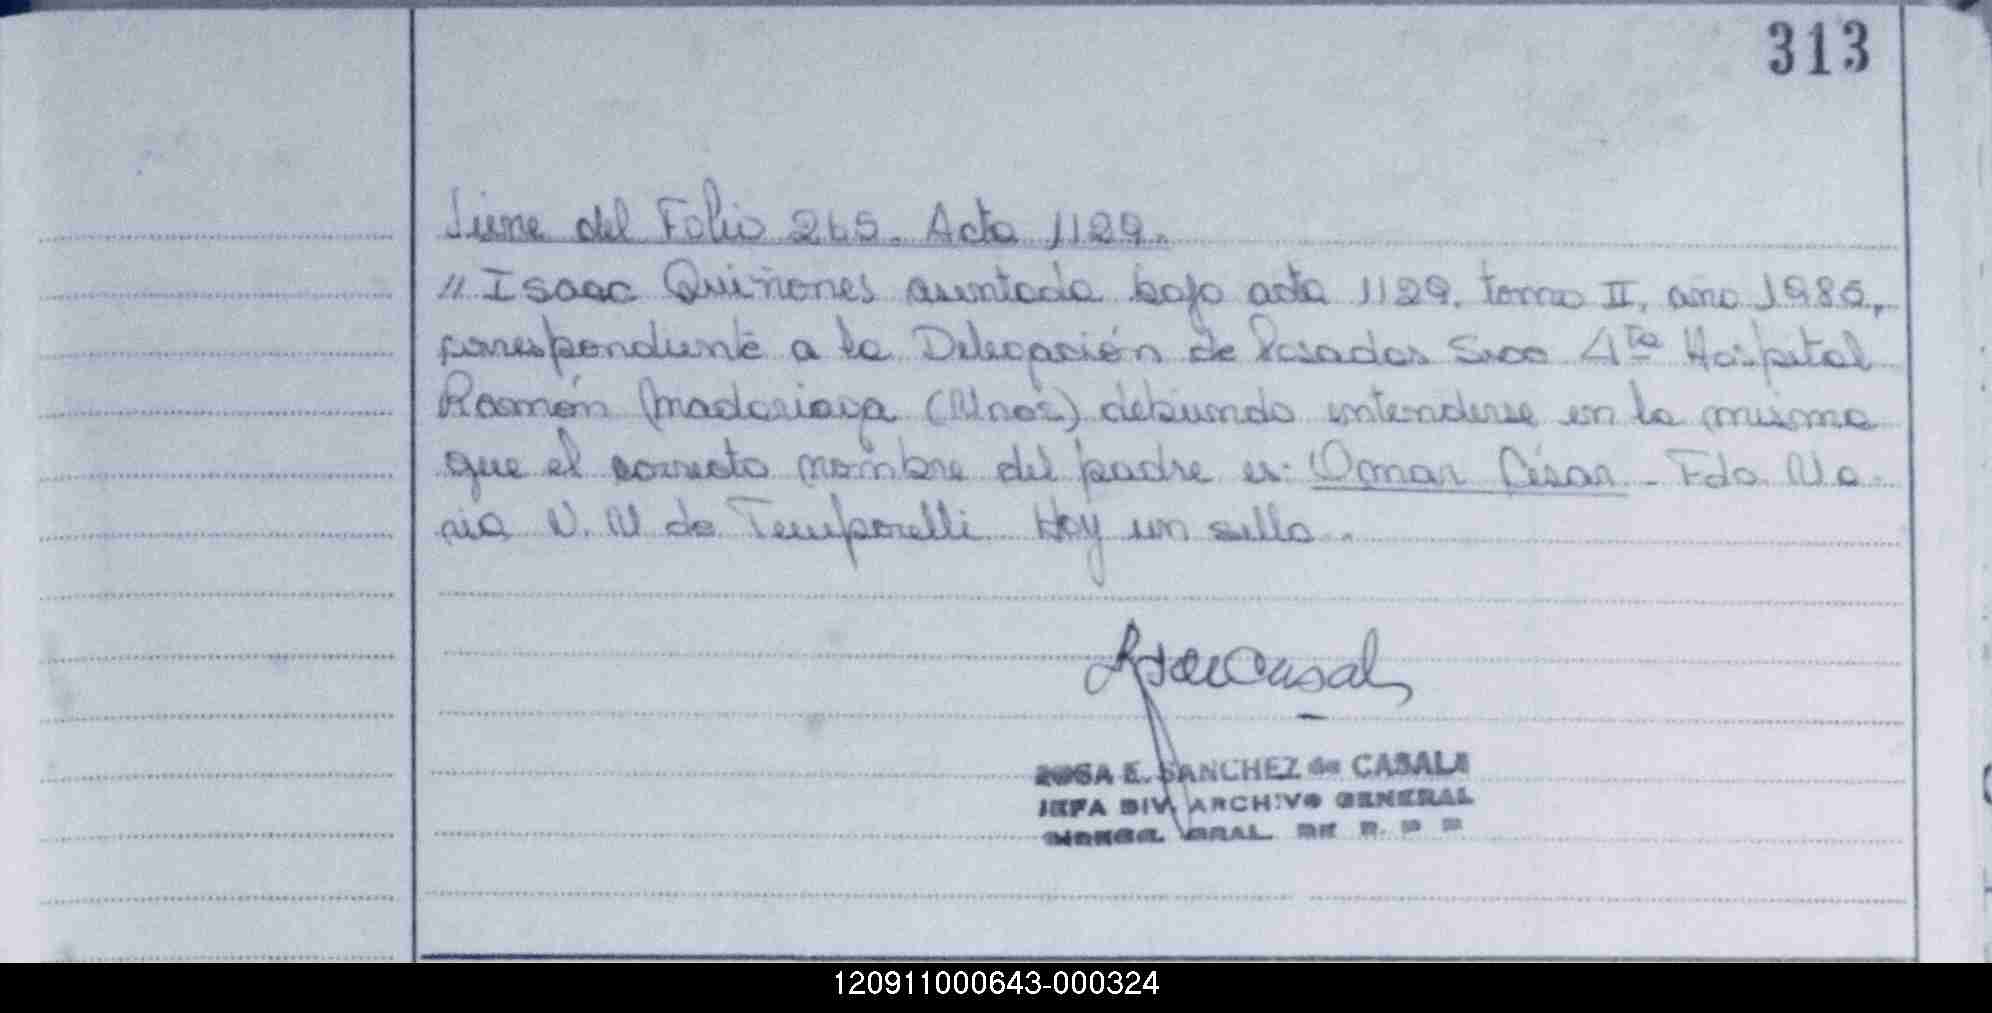 313
Viene del Folio 265. Acta 1129.
" Isaac Quiñones asentada bajo acta 1129. tomo II, año 1985,
correspondiente a la Delegación de Posadas Secc 4ta Hospital
Ramón Madariaga (Mnes) debiendo entenderse en la misma
que el correcto nombre del padre es: Omar César - Fdo. Ma-
ria N. N de Temporelli Hay un sello.
ROSA E. SANCHEZ de CASALA
JEFA DIV. ARCHIVO GENERAL
GRAL. DE R. P P
120911000643-000324